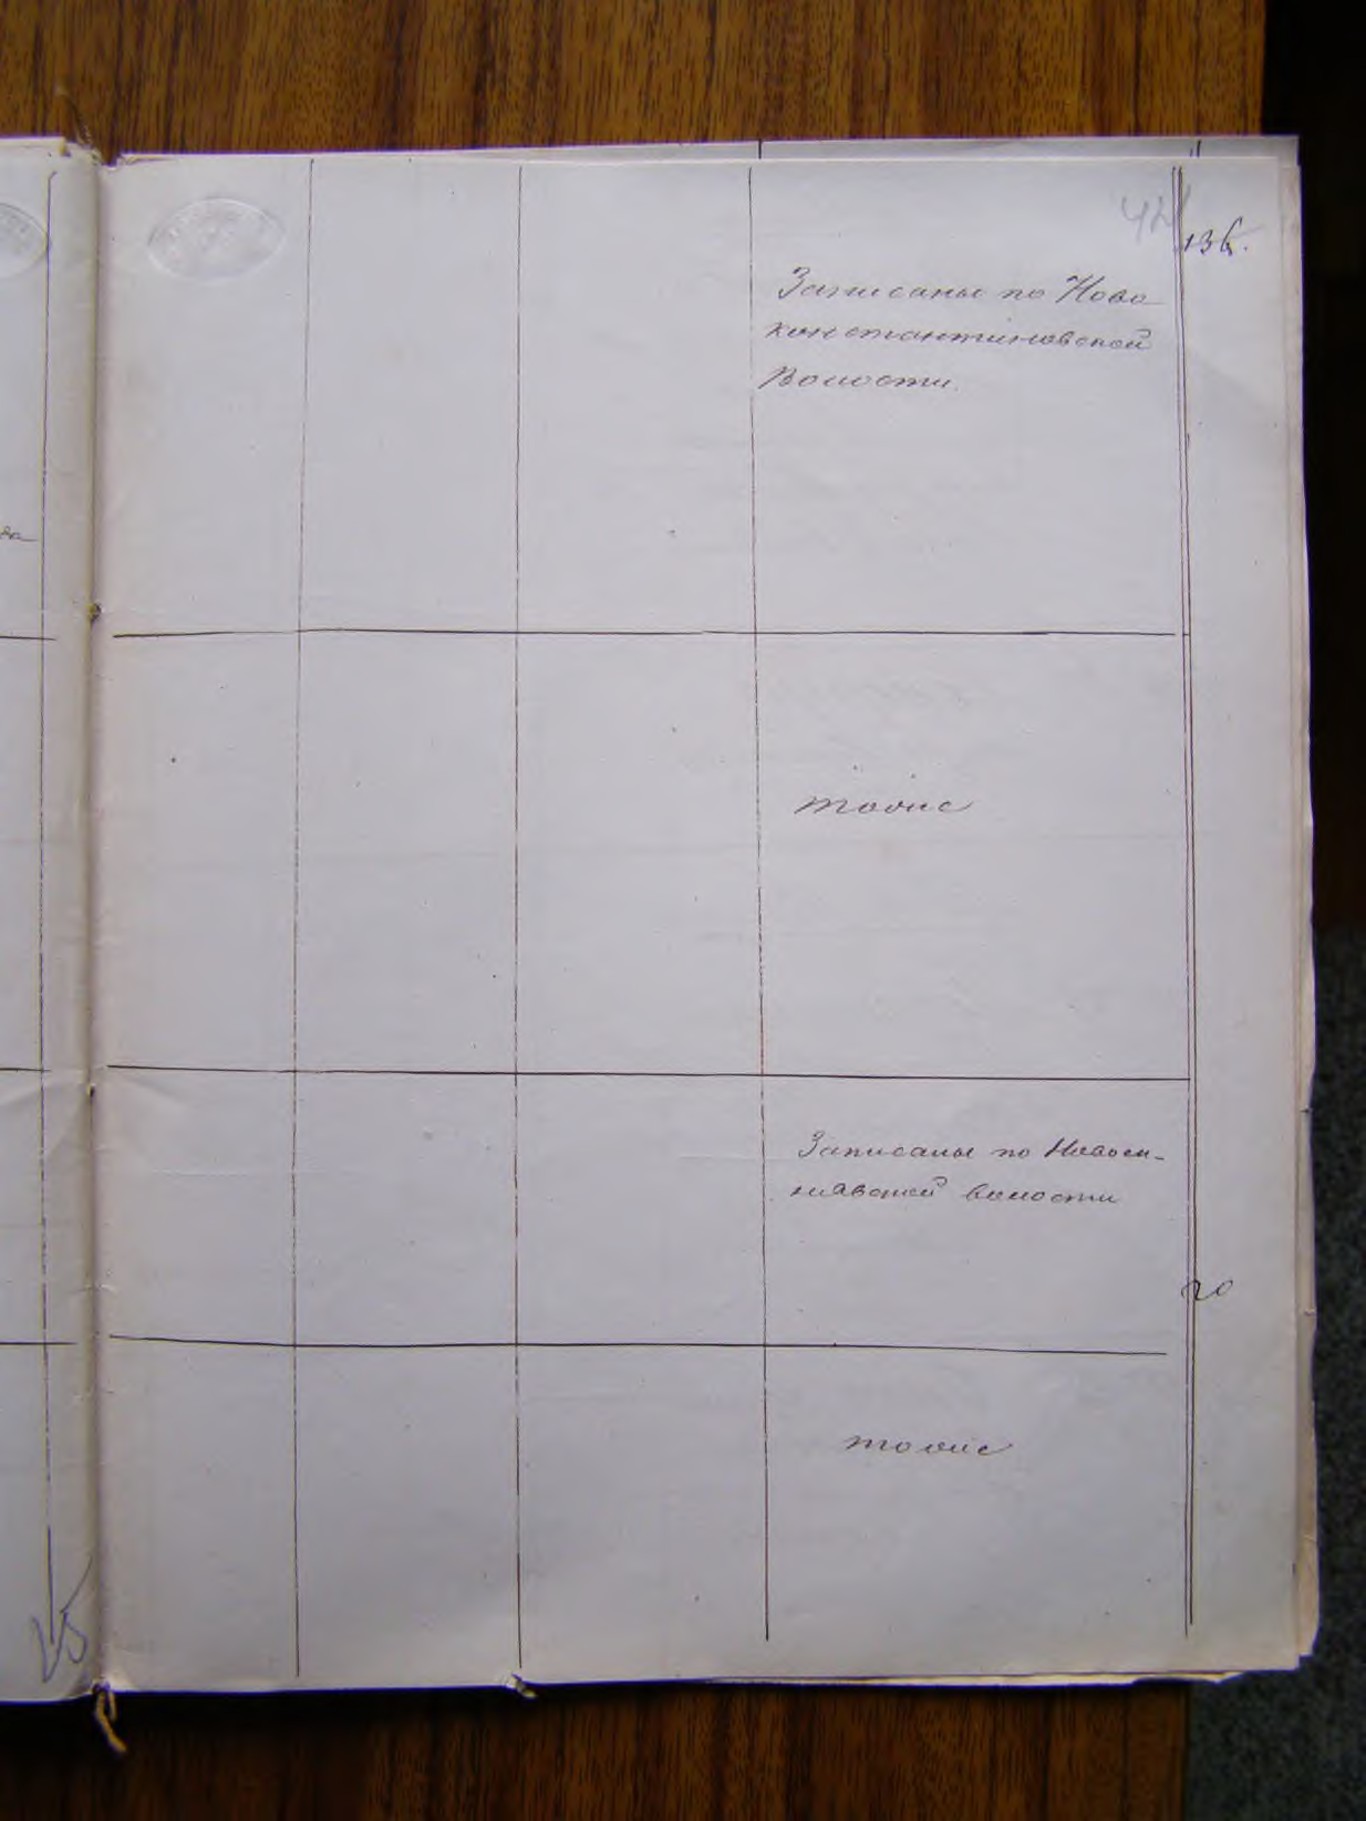 42
136.
Записаны по Ново
константиновской
Волости.
тоже
Записаны по Новоси-
нявской волости
20
тоже
15